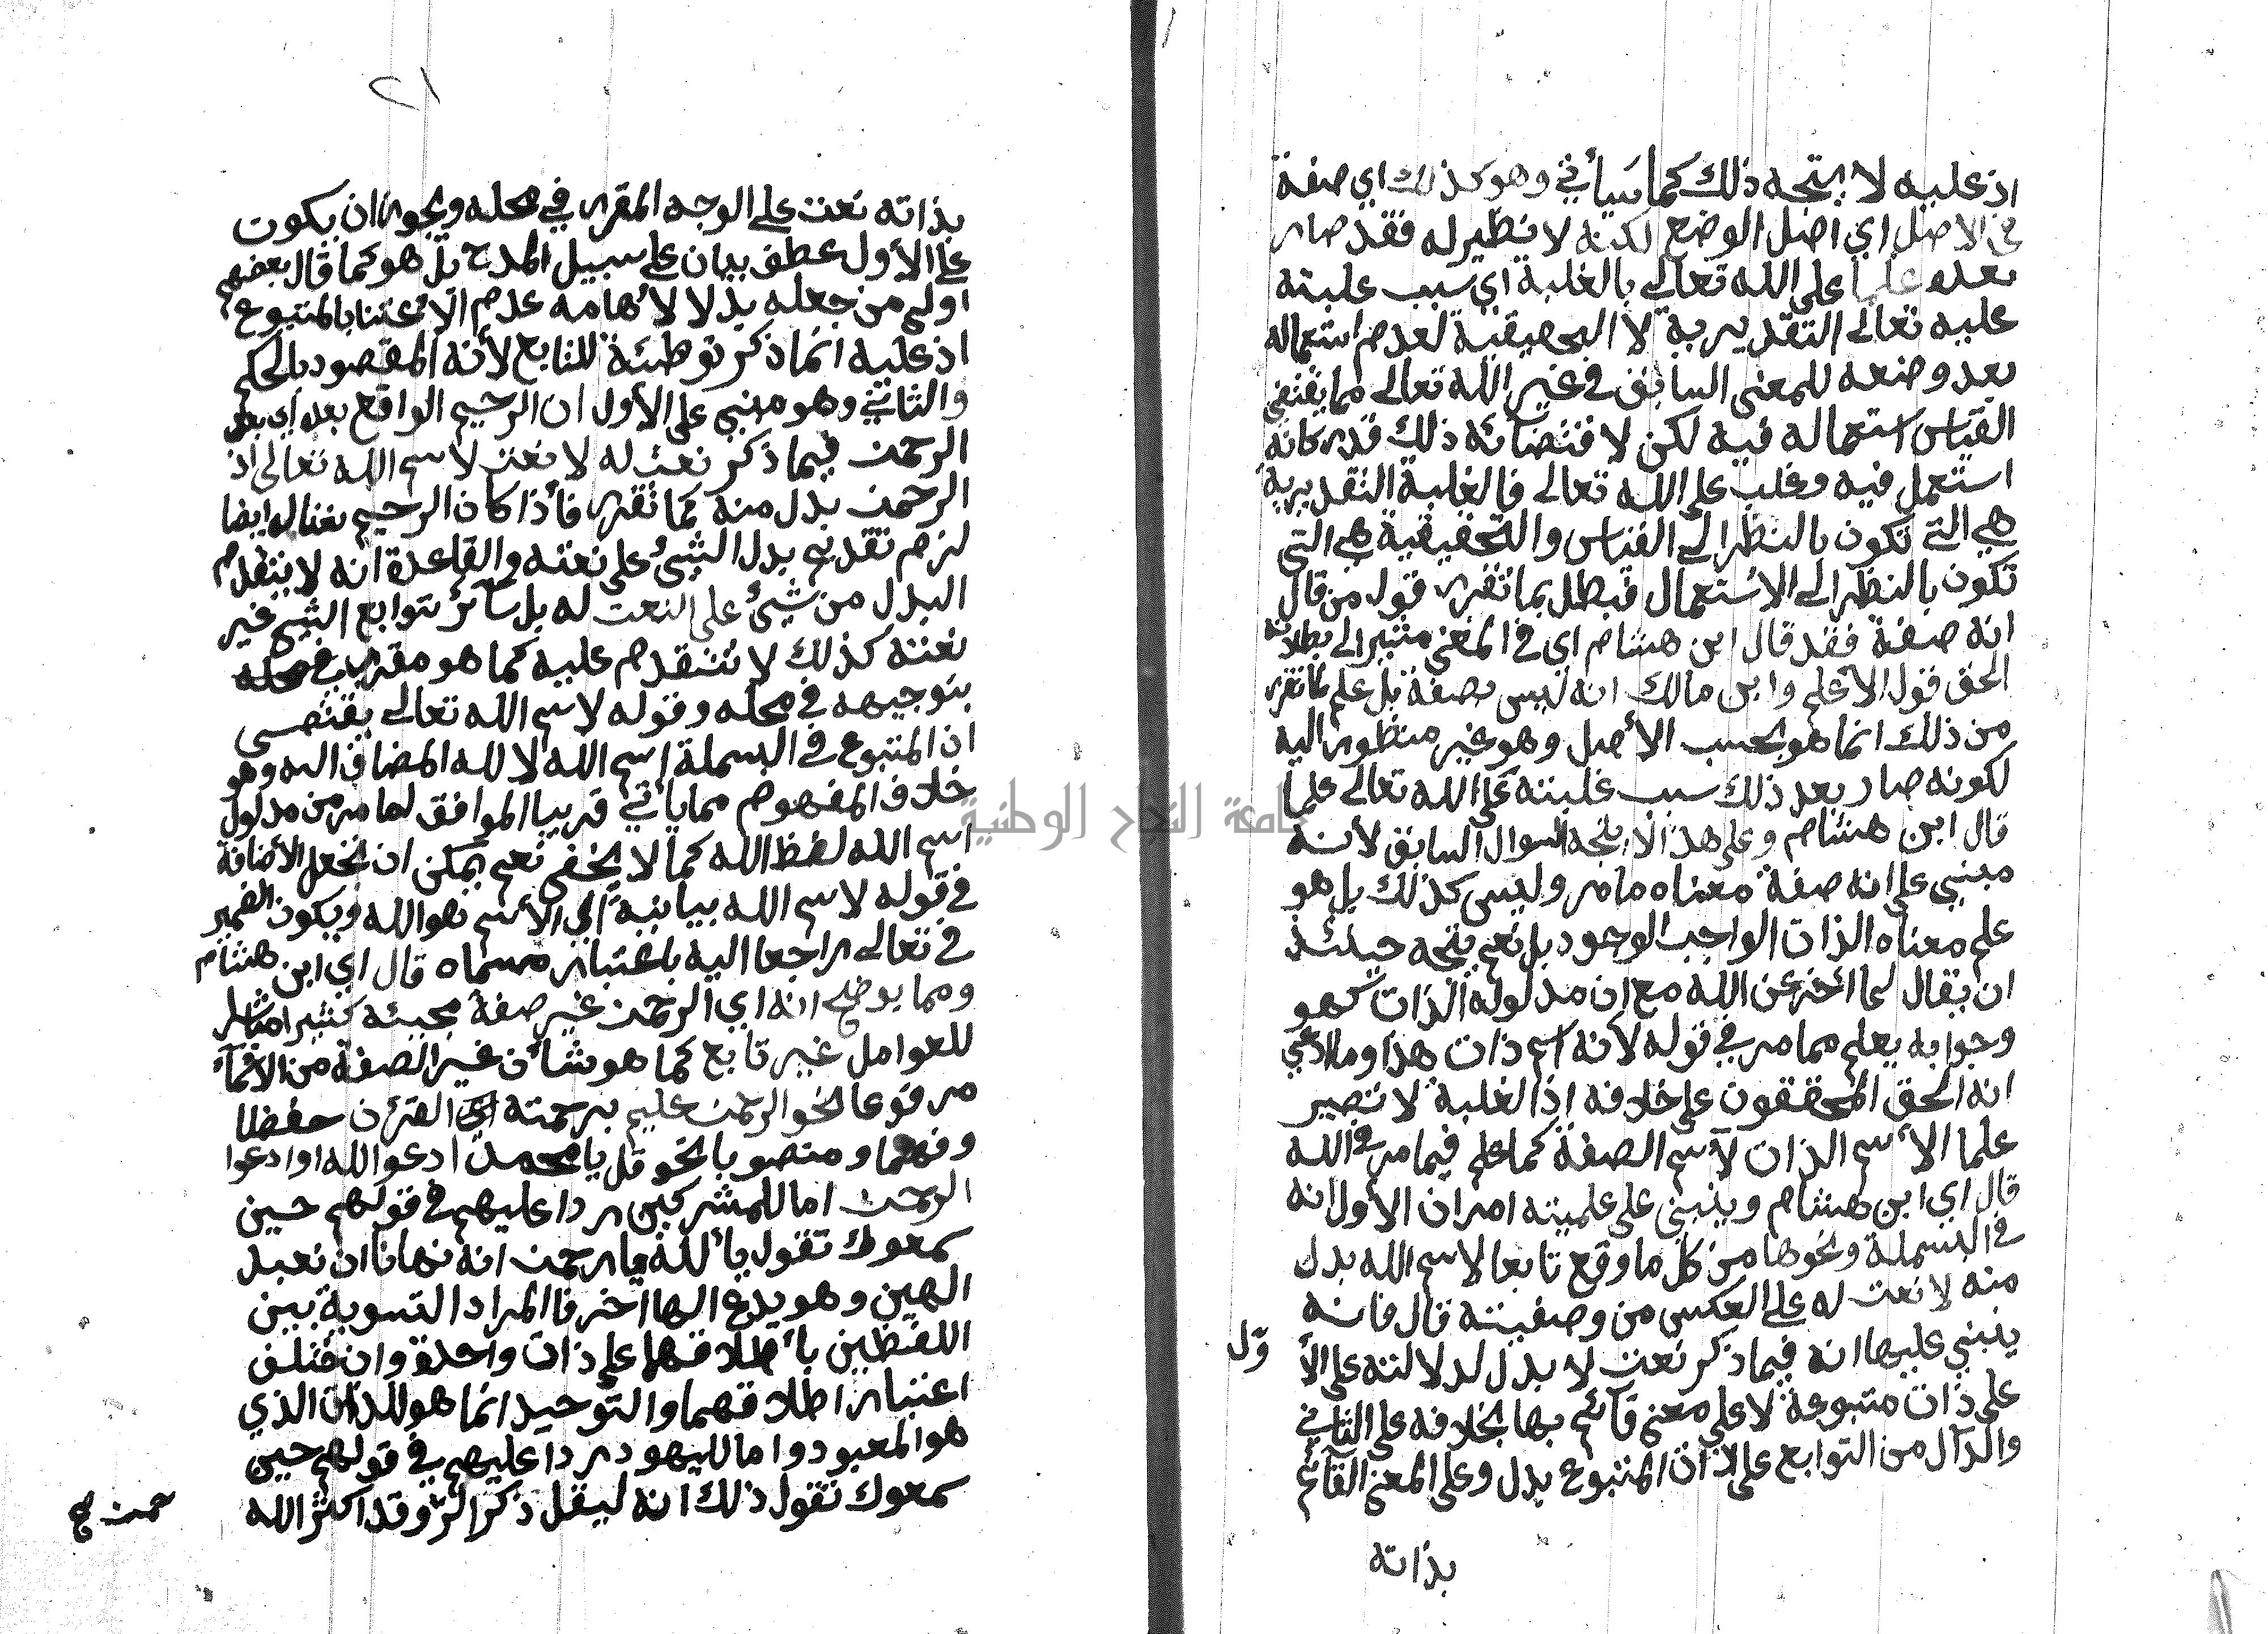 اذ عليه لا يتجه ذلك كما سيأتي وهو كذلك اي صفة
في الاصل اي اصل الوضع لكنه لا نظير له فقد صار
بعده علما على الله تعالى بالغلبة اي سبب غلبته
عليه تعالى التقديرية لا التحقيقية لعدم استعماله
بعد وضعه للمعنى السابق في غير الله تعالى مما يقتضي
القياس استعماله فيه لكن لاقتضائه ذلك قدر كانه
استعمل فيه وغلب على الله تعالى فالغلبة التقديرية
هي التي تكون بالنظر الى القياس والتحقيقية هي التي
تكون بالنظر الى الاستعمال فبطل بما تقرر قول من قال
انه صفة فقد قال ابن هشام اي في المغني مشيرا لى بطلانه
الحق قول الأعلم وابن مالك انه ليس بصفة بل علم لما تقرر
من ذلك انما هو بحسب الأصل وهو غير منظور اليه
لكونه صار بعد ذلك سبب غلبته على الله تعالى علما
قال ابن هشام وعلى هذا لا يتجه السوال السابق لأنه
مبني على انه صفة معناه ما مر وليس كذلك بل هو
علم معناه الذات الواجب الوجود بل نعم يتجه حينئذ
ان يقال لما أخر عن الله مع ان مدلوله الذات كهو
وجوابه يعلم مما مر في قوله لأنه اسم ذات هذا وما ادعي
انه الحق المحققون على خلافه اذ الغلبة لا تصير
علما الا اسم الذات لا اسم الصفة كما علم فيما مر في الله
قال اي ابن هشام وينبني على علميته امران الأول انه
في البسملة ونحوها من كل ما وقع تابعا لاسم الله بدل
منه لا نعت له على العكس من وصفيته قال فانه
ينبني عليها انه فيما ذكر نعت لا بدل لدلالته على الأ
ول
على ذات متبوعة لا على معنى قائم بها بخلافه على الثاني
والدآل من التوابع على الذات المتبوع بدل وعلى المعنى القائم
بذاته
٢١
بذاته نعت على الوجه المقرر في محله ويجوز ان يكون
على الأول عطف بيان على سبيل المدح بل هو كما قال بعضهم
اولى من جعله بدلا لأيهامه عدم الأعتنا بالمتبوع
اذ عليه انما ذكر توطئة للتابع لأنه المقصود بالحكم
والثاني وهو مبني على الأول ان الرحيم الواقع بعده اي بعد
الرحمن فيما ذكر نعت له لا نعت لاسم الله تعالى اذ
الرحمن بدل منه كما تقرر فأذا كان الرحيم نعتا له ايضا
لزم تقديم بدل الشيئ على نعته والقاعدة انه لا يتقدم
البدل من شيئ على النعت له بل سآئر توابع الشيئ غير
نعته كذلك لا تتقدم عليه كما هو مقرر في محله
بتوجيهه في محله وقوله لاسم الله تعالى يقتضى
ان المتبوع في البسملة اسم الله لا لله المضاف اليه وهو
خلاف المفهوم مما يأتي قريبا الموافق لما مر من مدلول
اسم الله لفظ الله كما لا يخفى نعم يمكن ان نجعل الأضافة
في قوله لاسم الله بيانية اي الأسم هو الله ويكون الضمير
في تعالى راجعا اليه باعتبار مسماه قال اي ابن هشام
ومما يوضح انه اي الرحمن غير صفة مجيئه كثيرا
للعوامل غير تابع كما هو شأن غير الصفة من الاسمآء
مرفوعا نحو الرحمن عليم برحمته اي القرآن حفظا
وفهما ومنصوبا نحو قل يا محمد ادعوا الله او ادعوا
الرحمن اما للمشركين ردا عليهم في قولهم حين
سمعوك تقول يا ألله يا رحمن انه نهانا ان نعبد
الهين وهو يدع الها اخر فالمراد التسوية بين
اللفظين بأطلاقهما على ذات واحدة وان اختلف
اعتبار اطلاقهما والتوحيد انما هو للذات الذي
هو المعبود واما لليهود ردا عليهم في قولهم حين
سمعوك تقول ذلك انه ليقل ذكر الر وقد اكثر الله
حمن صح
جامعة النجاح الوطنية